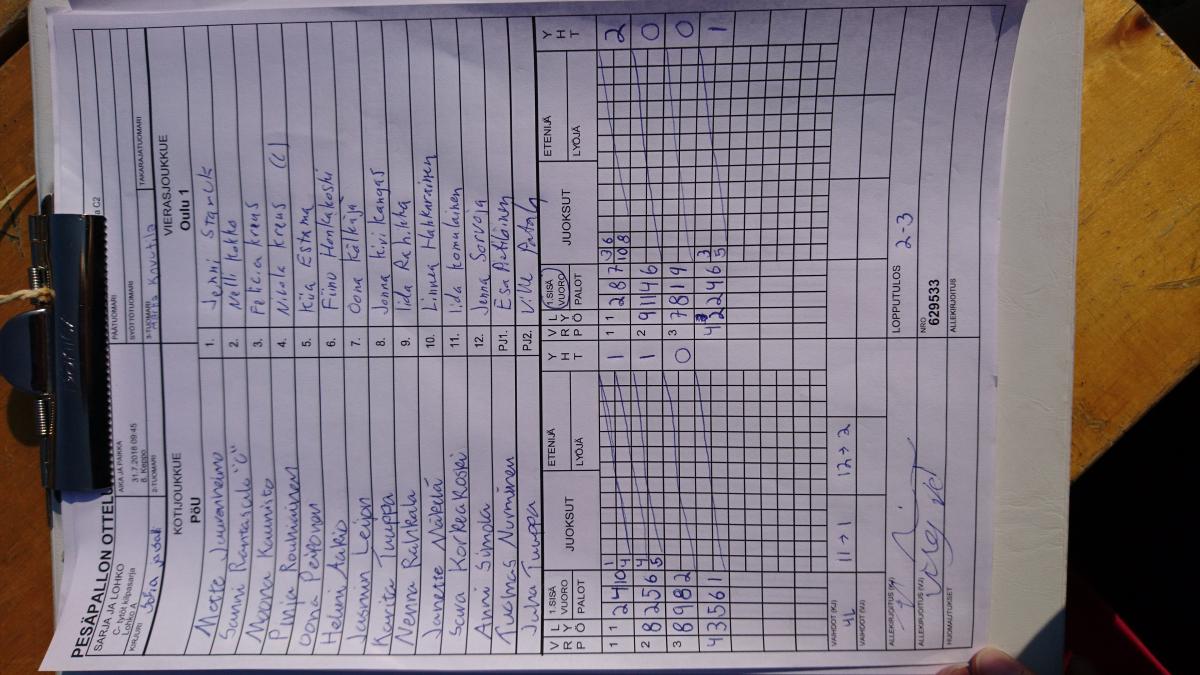 PESÄPALLON OTTELU
SARJA JA LOHKO
C- tytöt kilpasarja
Lohko A
AIKA JA PAIKKA
31.7.2018 09:45
8. Keppo
PÄÄTUOMARI
SYÖTTÖTUOMARI
KIRJURI
2-TUOMARI
3-TUOMARI
TAKARAJATUOMARI
KOTIJOUKKUE
PöU
VIERASJOUKKUE
Oulu 1
Mette Juuranheimo
1. Jenni
Sanni Rantasalo "C"
2. Nelli Kokko
Noora Kaunisto
3. Felicia Kreus
Pinja Rouhiainen
4. Nikola Kreus (C)
Oona Peiponen
5. Kiia Estama
Helmi Aakio
6. Fiinu Honkakoski
Jasmin Leijon
7. Oona Kälkäjä
Karita Tuuppa
8. Jonna Kivikangas
Nenna Rahkala
9. Iida
Janette Mäkelä
10. Linnea
Saura Korkeakoski
11. Iida Komulainen
Anni Simola
12. Jenna Sorvoja
Tuomas Nurminen
PJ1. Esa
Juha Tuuppa
PJ2. Ville
V R P
L Y Ö
1.SISÄ VUORO
PALOT
JUOKSUT
ETENIJÄ
LYÖJÄ
Y H T
V R P
L Y Ö
1.SISÄ VUORO
PALOT
JUOKSUT
ETENIJÄ
LYÖJÄ
Y H T
1 1 2 4 10 1 4 1
1 1 2 8 7 3 6 10 8 2
2 8 2 5 6 4 5 1
2 9 11 4 6 0
3 8 9 8 2 0
3 7 8 1 9 0
4 3 5 6 1
4 2 2 4 6 3 5 1
VAIHDOT (KJ)
11→1
12→2
VAIHDOT (VJ)
LOPPUTULOS 2-3
ALLEKIRJOITUS (KJ)
ALLEKIRJOITUS (VJ)
NRO
629533
HUOMAUTUKSET
ALLEKIRJOITUS